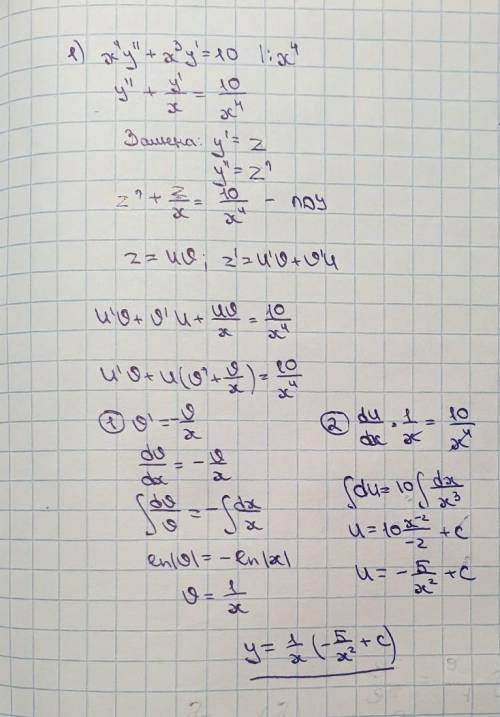 1) x⁴y'' + x³y' = 10 |:x⁴
y'' + y'/x = 10/x⁴
Замена: y' = z
y'' = z'
z' + z/x = 10/x⁴ – ЛДУ
z = uv; z' = u'v + v'u
u'v + v'u + uv/x = 10/x⁴
u'v + u(v' + v/x) = 10/x⁴
① v' = -v/x
dv/dx = -v/x
∫dv/v = -∫dx/x
ln|v| = -ln|x|
v = 1/x
② du/dx · 1/x = 10/x⁴
∫du = 10∫dx/x³
u = 10 x⁻²/-2 + c
u = -5/x² + c
y = 1/x (-5/x² + c)